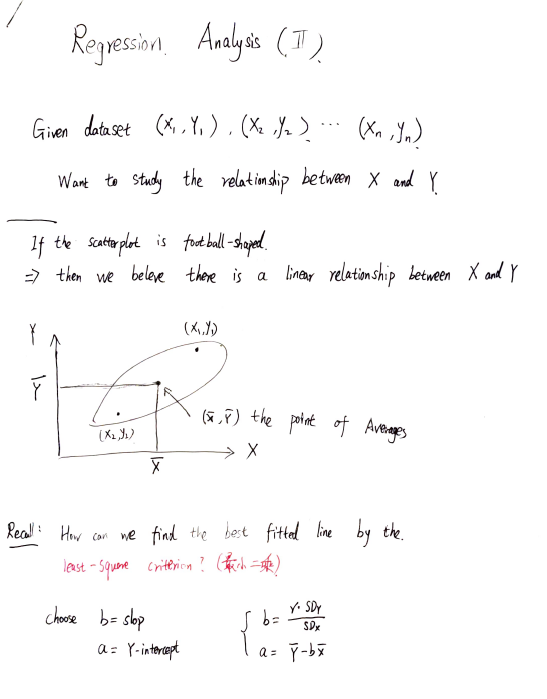 Regression. Analysis (II)
Given dataset (X₁, Y₁), (X₂, Y₂) ... (Xₙ, Yₙ)
Want to study the relationship between X and Y.
If the scatterplot is football-shaped.
=> then we beleve there is a linear relationship between X and Y
Y
(X₁, Y₁)
Ȳ
(X̄, Ȳ) the point of Averages
(X₂, Y₂)
X
X̄
Recall: How can we find the best fitted line by the.
least-square criterion? (最小二乘)
choose b = slop b = r·SDY/SDX
a = Y-intercept a = Ȳ-bX̄